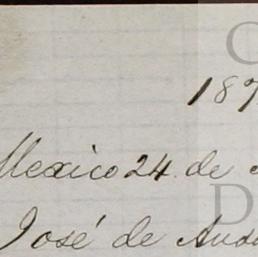 187
Mexico 24 de
José de Anda